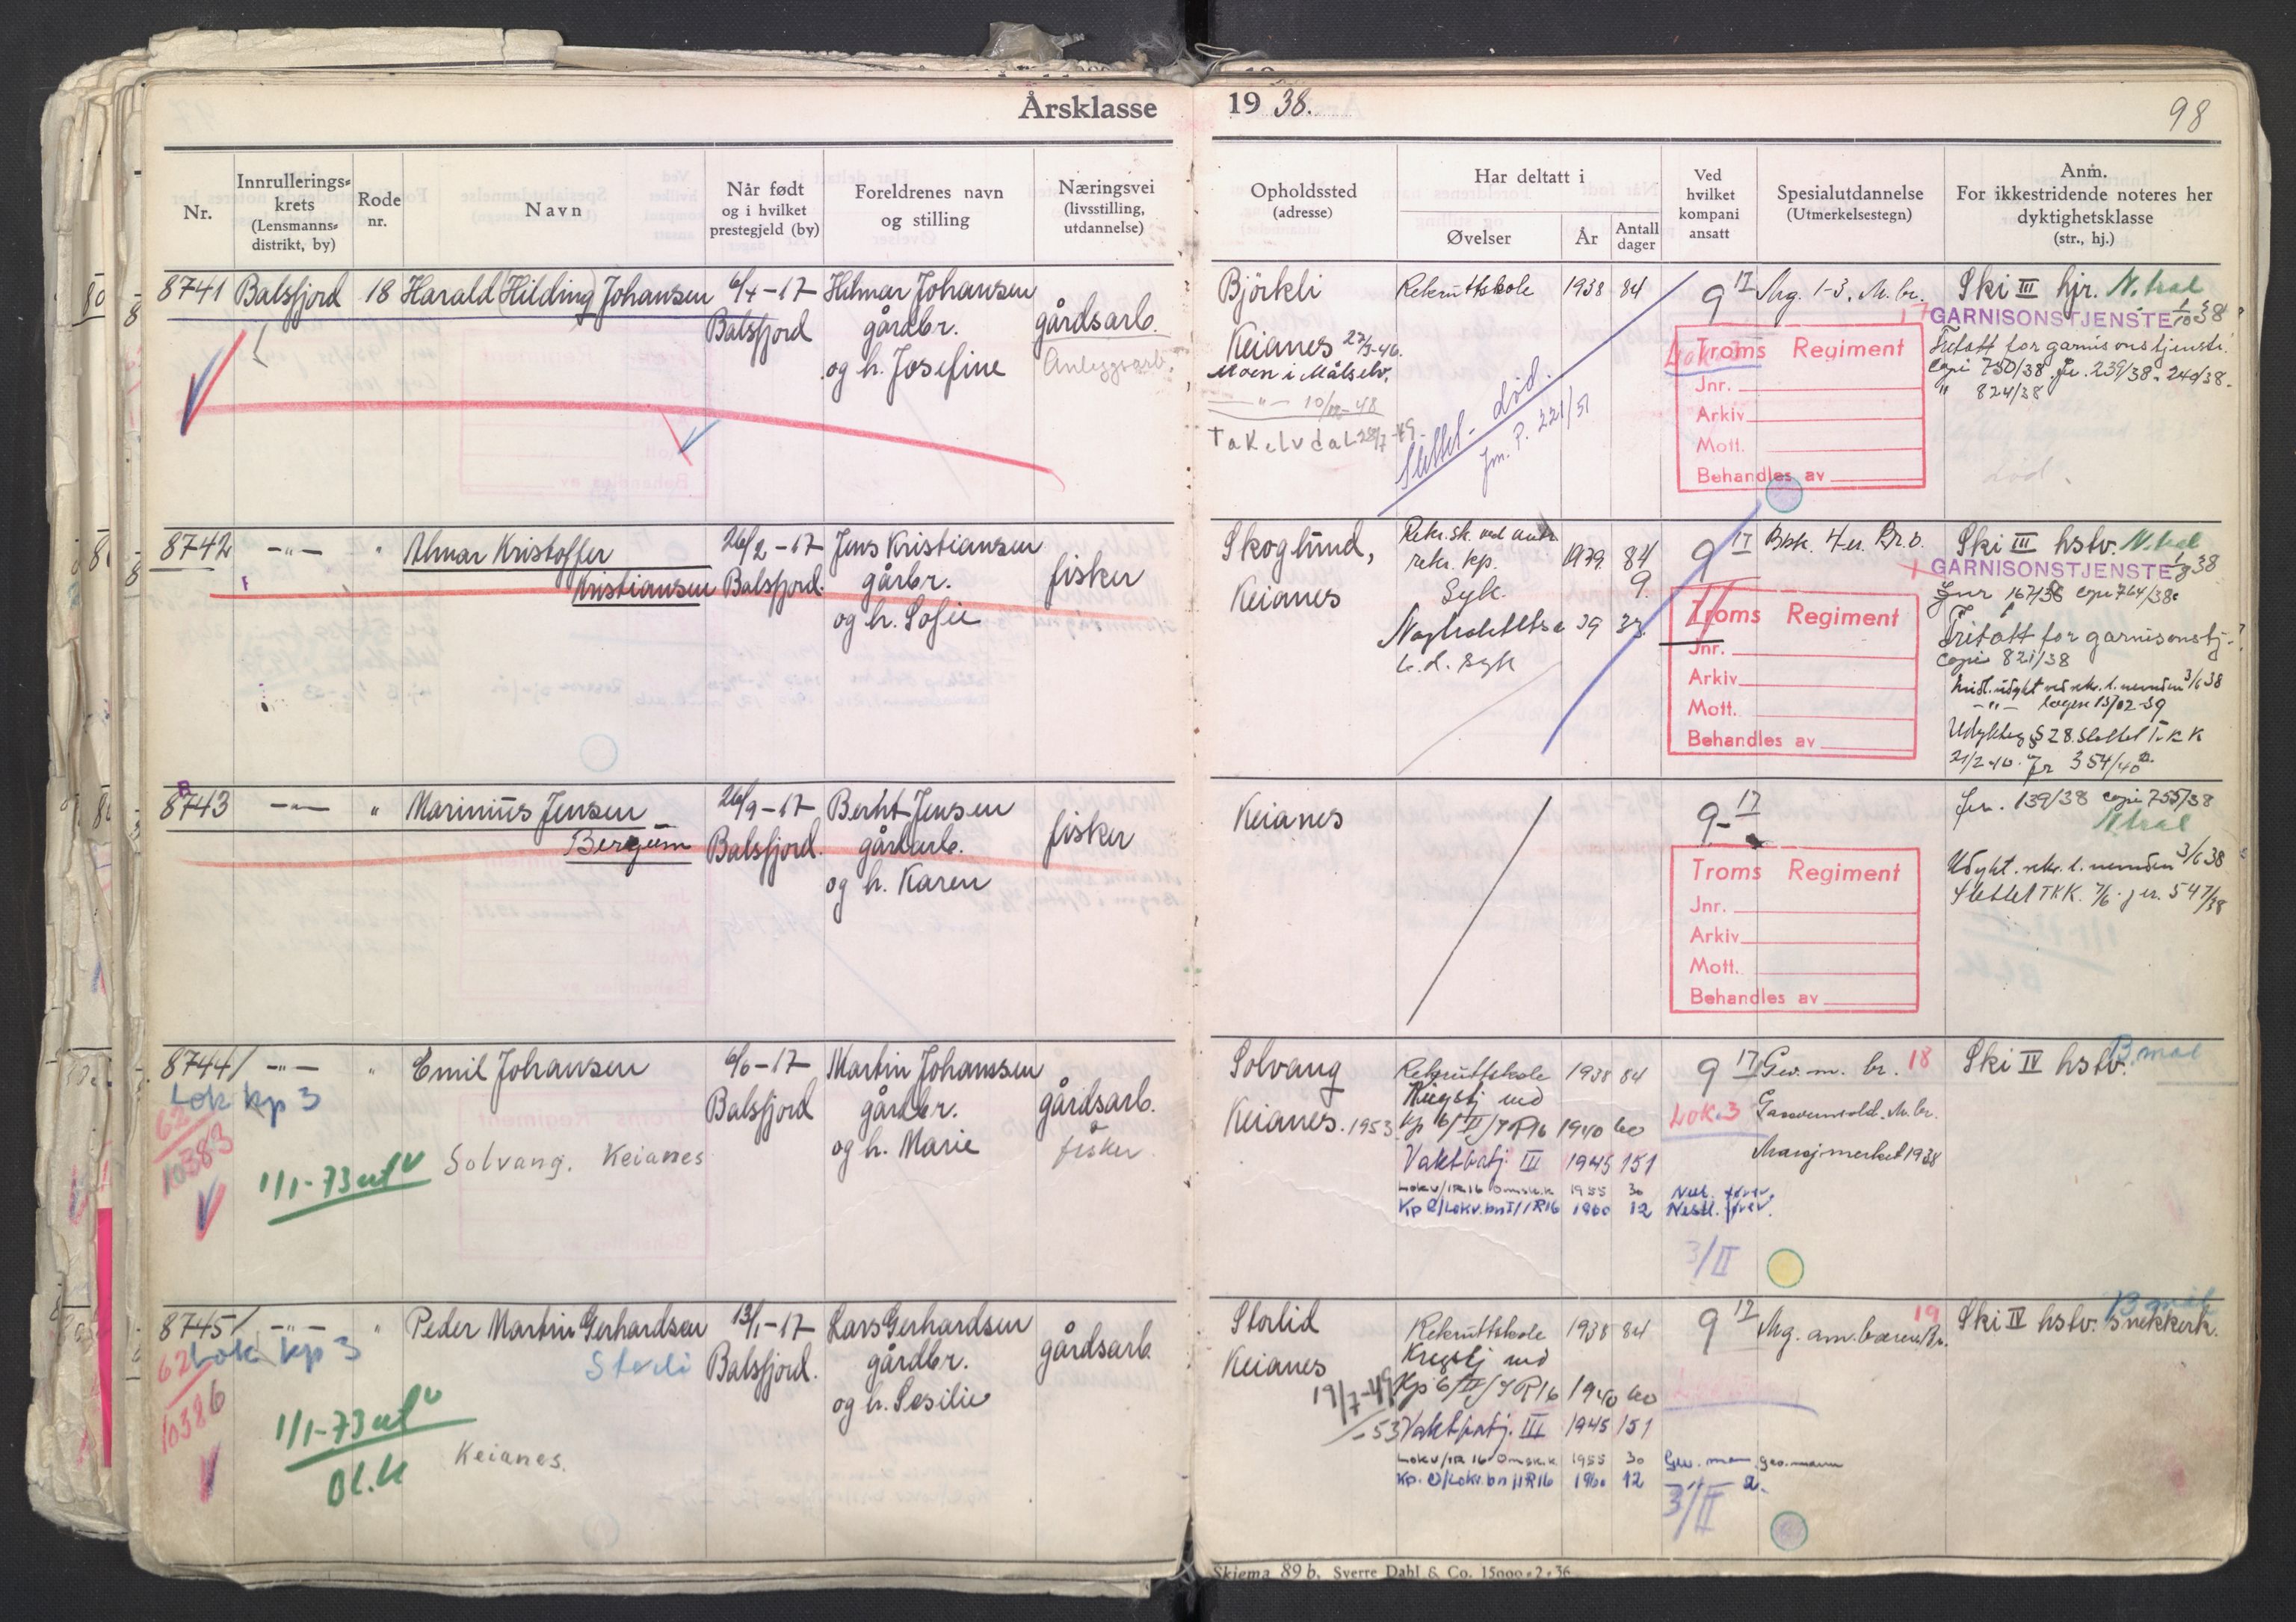 Årsklasse 1938.
98
Nr.
Innrullerings=
krets
(Lensmanns=
distrikt, by)
Rode
nr.
Navn
Når født
og i hvilket
prestegjeld (by)
Foreldrenes navn
og stilling
Næringsvei
(livsstilling,
utdannelse)
Opholdssted
(adresse)
Har deltatt i
Øvelser
År
Antall
dager
Ved
hvilket
kompani
ansatt
Spesialutdannelse
(Utmerkelsestegn)
Anm.
For ikkestridende noteres her
dyktighetsklasse
(str., hj.)
8741 Balsfjord 18 Harald Hilding Johansen 6/4-17 Hilmar Johansen
Balsfjord gårdbr. gårdsarb.
og h. Josefine Anleggsarb.
Björkli
Keianes 22/3-46.
Moen i Målselv.
—"— 10/12-48
Takelvdal 28/7-49
Rekruttskole 1938 84
Slettet - død.
jnr. P. 221/51
9 17 Mg. 1-3. M. br.
17
Lok.
Troms Regiment
Jnr.
Arkiv
Mott.
Behandles av
Ski III hjr. N.tral
GARNISONSTJENSTE 1/10 38
Fritatt for garnisonstjenste.
Copi 750/38. jr. 239/38. 240/38.
" 824/38
død.
8742 —"— " Almar Kristoffer 26/2-17 Jens Kristiansen
Kristiansen Balsfjord. gårbr. fisker
og h. Sofie
Skoglund,
Keianes
Rekr.sk. ved
rekr. kp. 1939 84
Syk. 9.
39 33.
syk
9 17
GARNISONSTJENSTE 1/8 38
Troms Regiment
Jnr.
Arkiv
Mott.
Behandles av
Ski III hstv. N.tral
Jnr 167/38 copi 764/38.
Fritatt for garnisonstj.
Copi 821/38
3/6 38
—"— 15/02-39
§28. Slettet T.K.K
21/2-40. Jr 354/40
8743 —"— " Marinius Jensen 26/9-17 Berht Jensen
Bergum Balsfjord. gårdarb. fisker
og h. Karen
Keianes
9-17
Troms Regiment
Jnr.
Arkiv
Mott.
Behandles av
jnr. 139/38 copi 755/38
N.tral
Udykt. rekr. l. nemden 3/6 38
Slettet TKK. 7/6. jr. 547/38
8744/ —"— " Emil Johansen 6/6-17 Martin Johanssen
Lok kp 3 Balsfjord gårdbr. gårdsarb.
62 og h. Marie fisker
10383
1/1-73 utv Solvang. Keianes
Solvang
Keianes. 1953
Rekruttskole 1938 84
Krigstj med
Kp 6/II/IR16 1940 60
Vaktbatj. III 1945 151
Lokv/IR16 Omsk.k 1955 30
Kp 2/Lokv.bn I/IR16 1960 12
9 17 Gev. m. br. 18
Lok.3
Marsjmerket 1938
3/II
Ski IV hstv. B mål
8745/ —"— " Peder Martin Gerhardsen 13/1-17 Lars Gerhardsen
Lok kp 3 Balsfjord. gårdbr. gårdsarb.
62 og h. Sesilie
10386
1/1-73 utv
Bl.k
Keianes.
Storlid
Keianes
19/7-49
-53
Rekruttskole 1938 84
Krigstj med
Kp 6/II/IR16 1940 60
Vaktbatj. III 1945 151
Lokv/IR 16 Omsk.k 1955 30
Kp. 2/Lokv.bn I/IR16 1960 12
9 17 Mg. am. bærer. Br.
19
Gev. mann
3/II
Ski IV hstv. Snekkerk.
B mål
Skjema 89 b. Sverre Dahl & Co. 15000-2-36